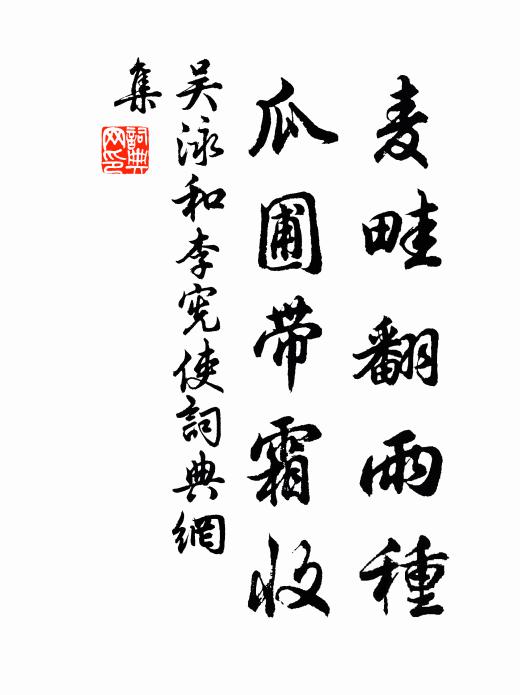 麦畦翻雨種
瓜圃帶霜收
吴泳和李寃使詞典網
集
詞典
网印